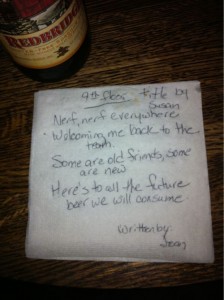 REDBRIDGE
9th floor Title by
Susan
Nerf, nerf everywhere
Welcoming me back to the
team.
Some are old friends, some
are new
Here's to all the future
beer we will consume
Written by: